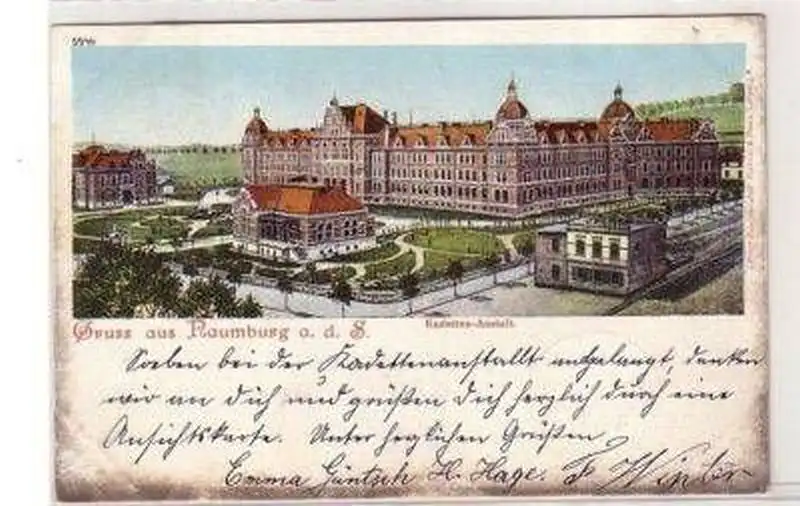 Gruss aus Naumburg a. d. S.
Kadetten-Anstalt.
Soeben bei der Kadettenanstallt angelangt, denken
wir an dich und grüßen dich herzlich durch eine
Ansichtskarte. Unter herzlichen Grüßen
Emma Güntsch H. Hage. F. Winter